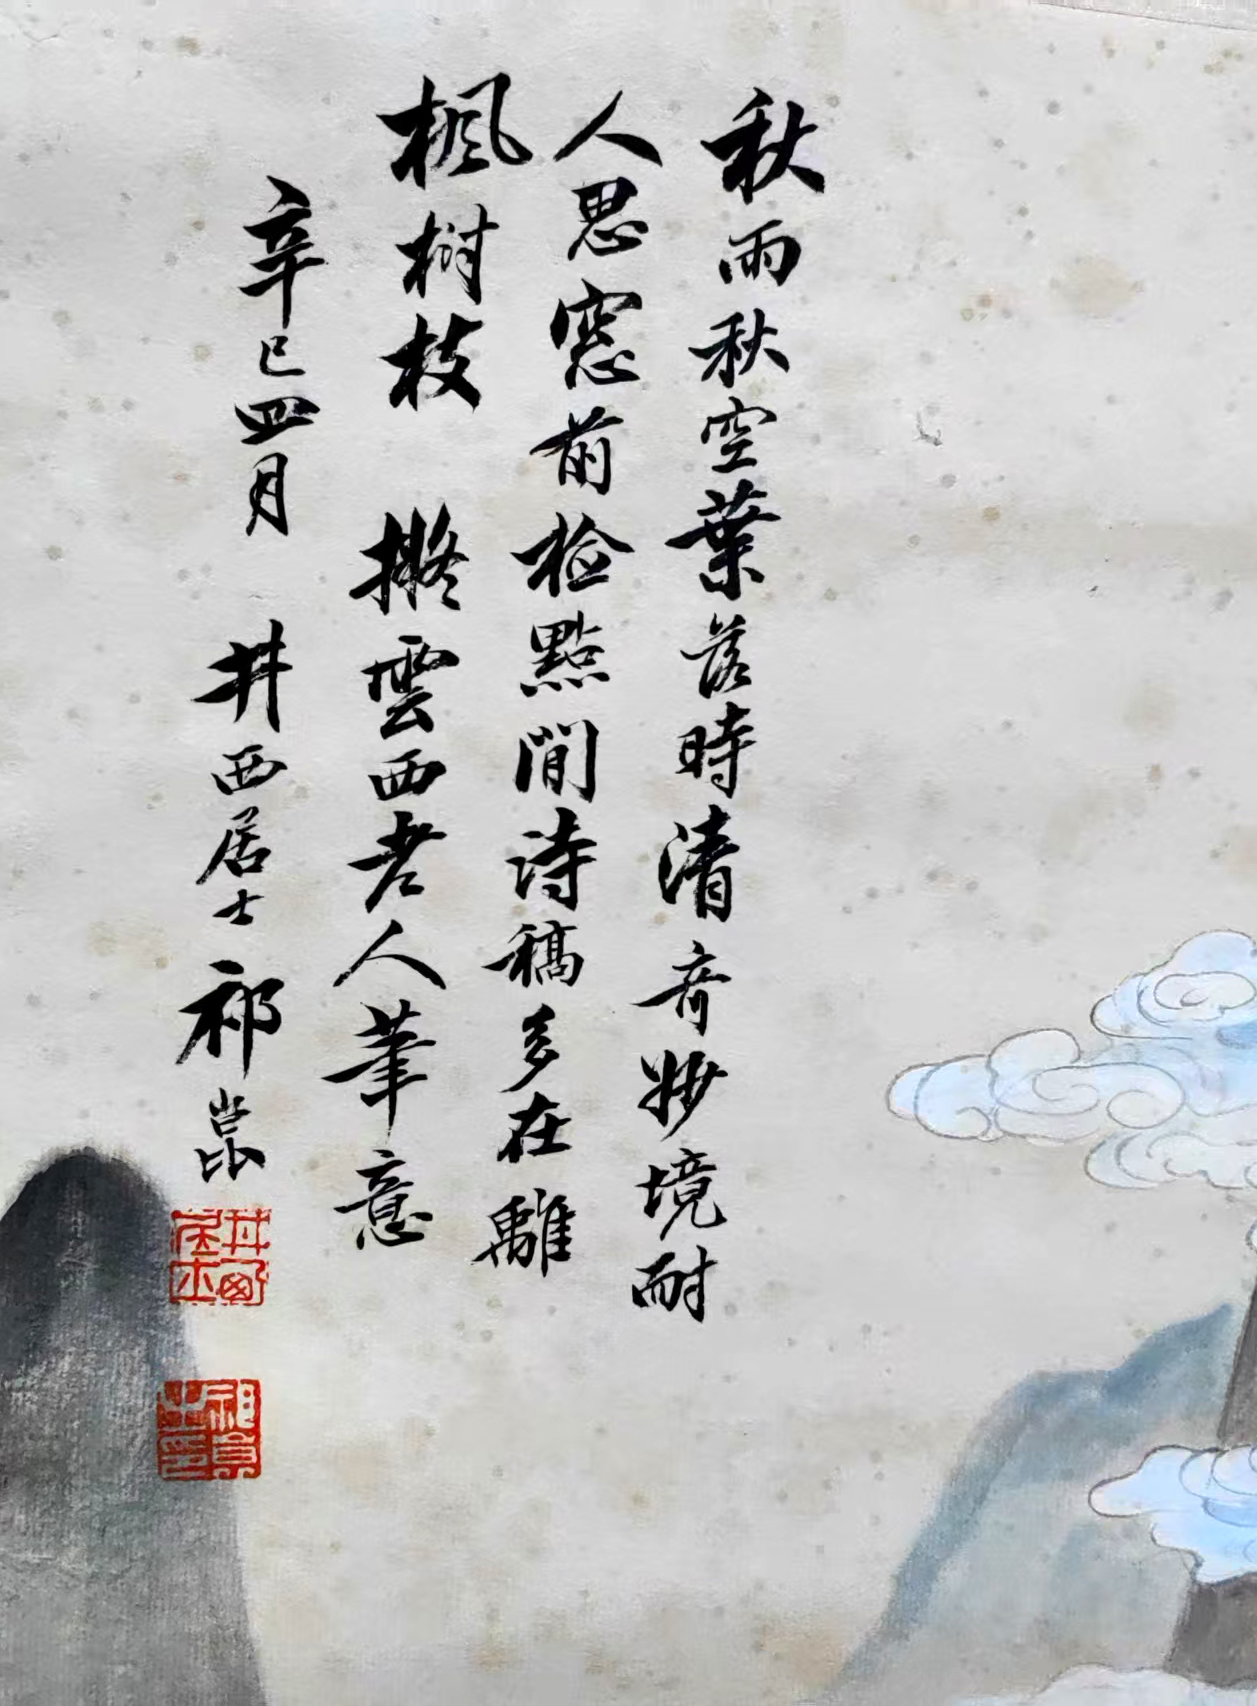 秋雨秋空葉落時清奇妙境耐
人思窓前檢點閒詩稿多在離
楓樹枝 擬雲西老人筆意
辛巳四月 井西居士祁崑
井西居士
祁昆之印